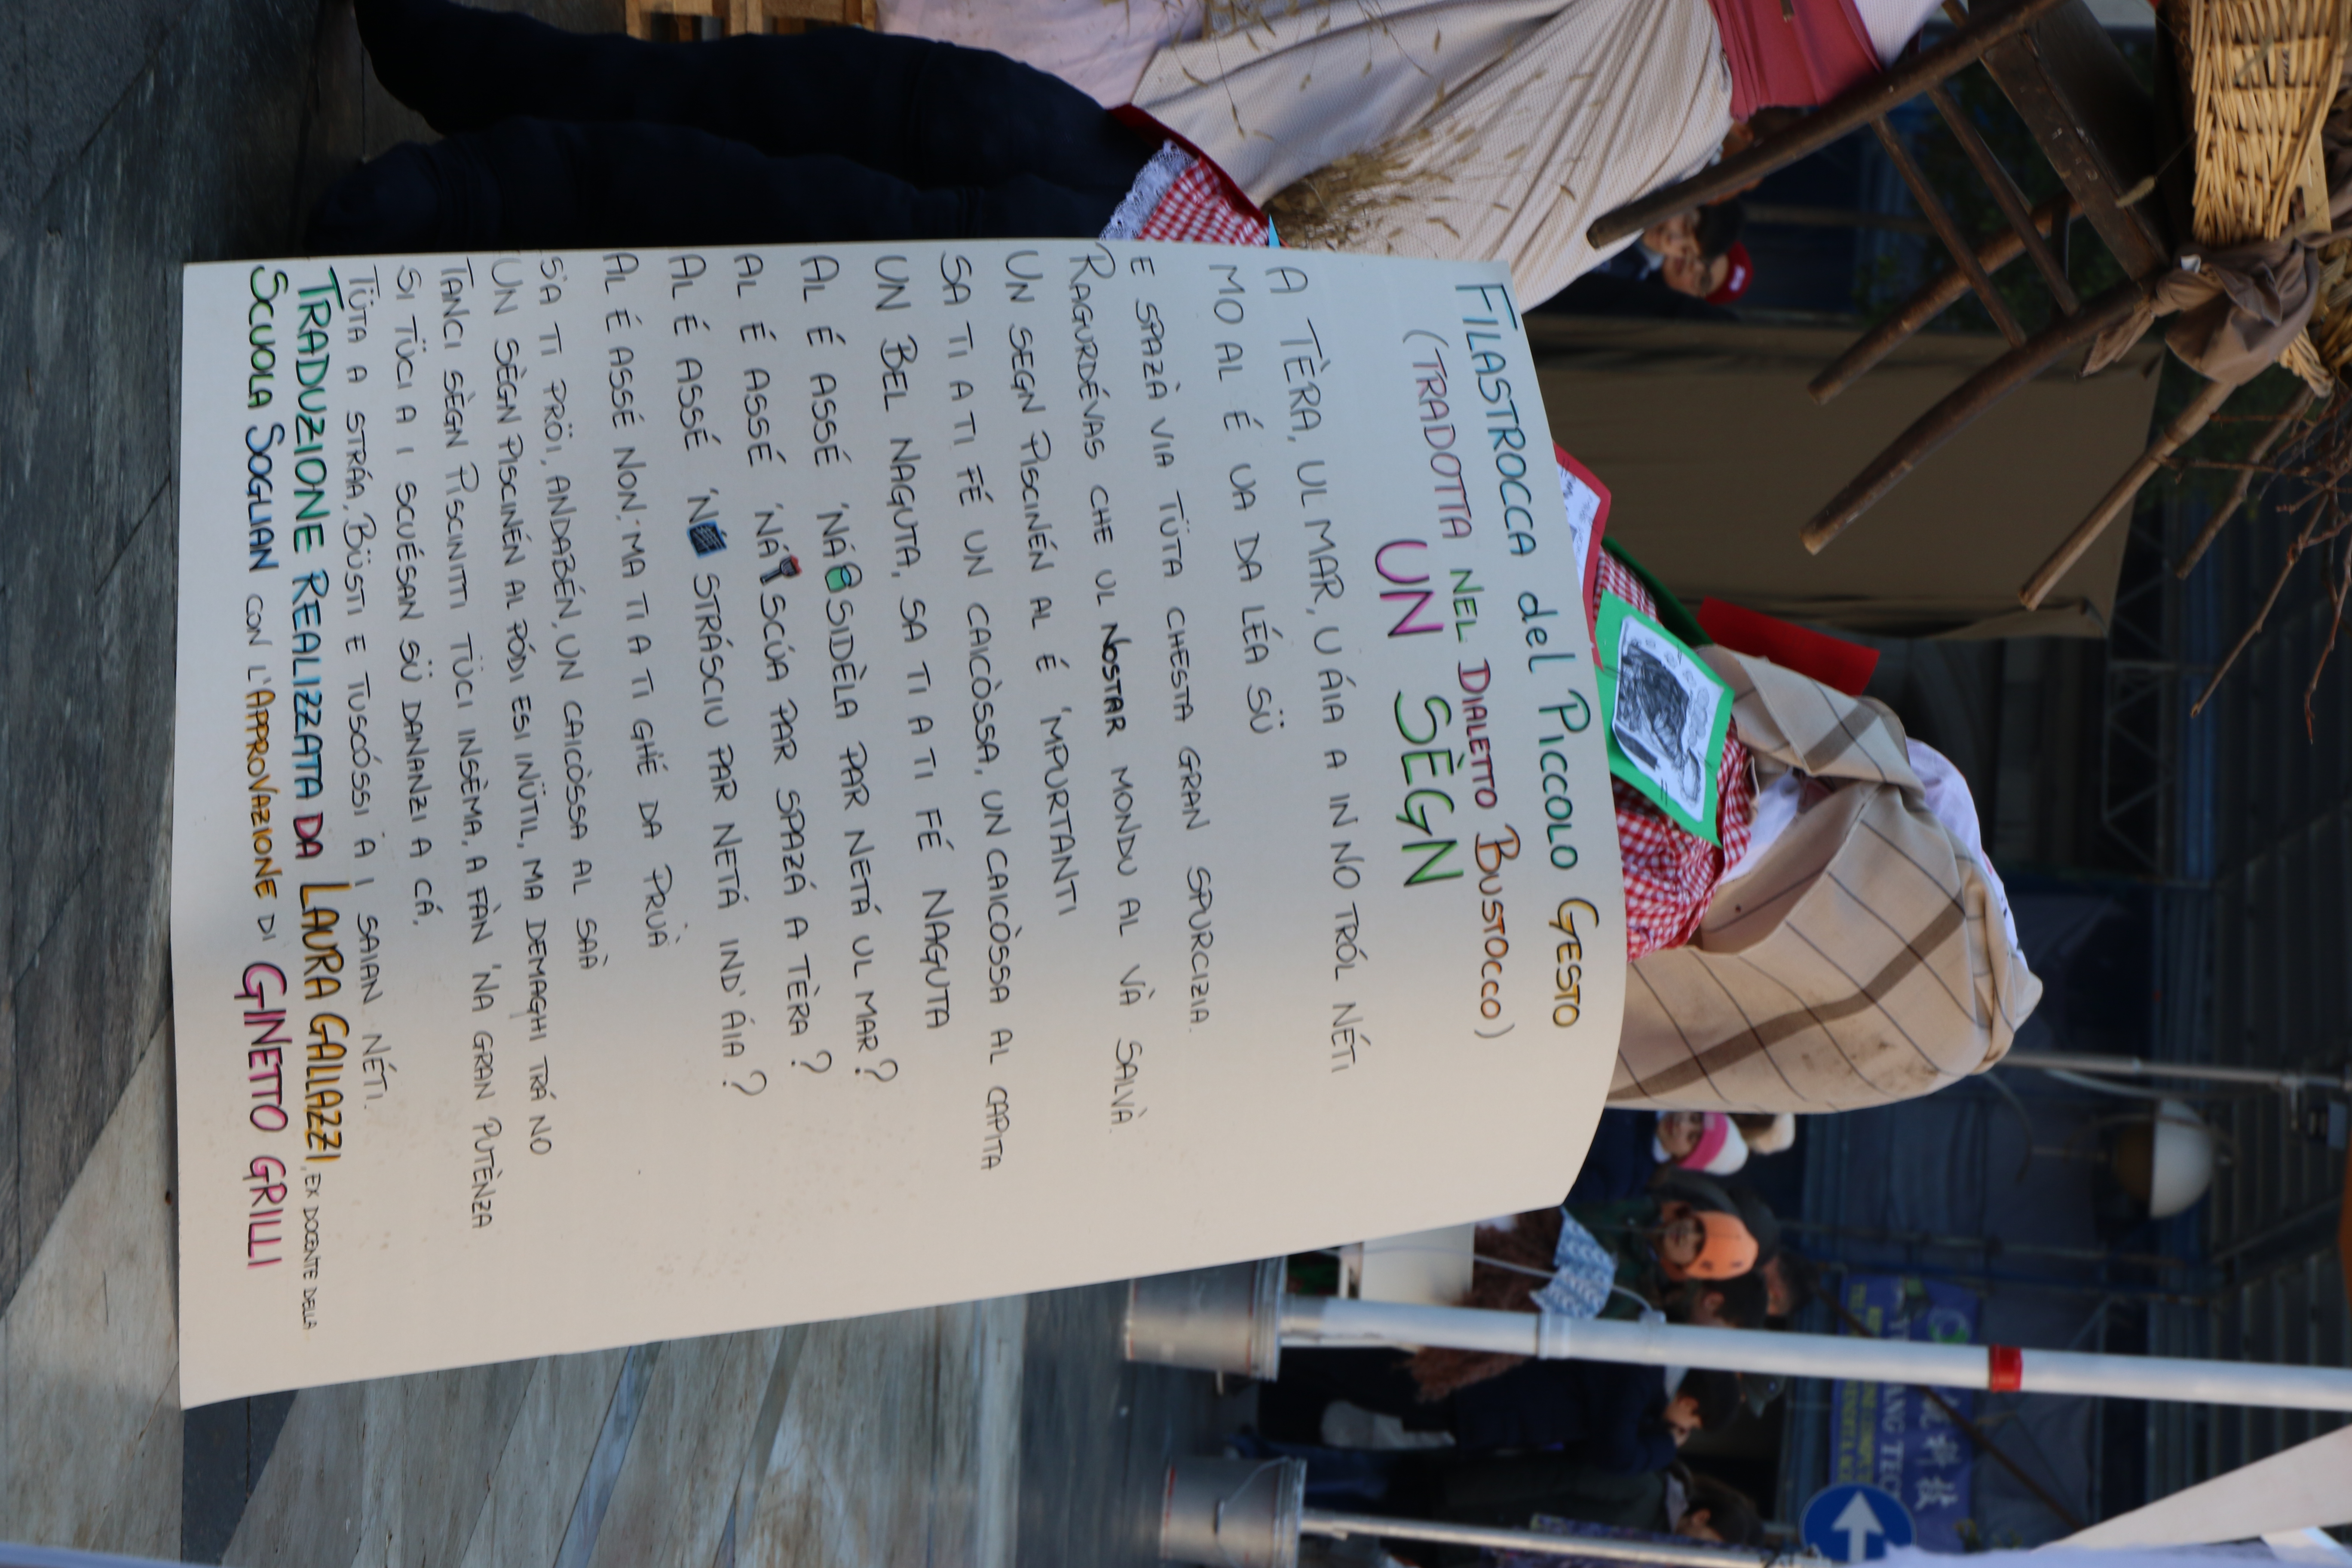 FILASTROCCA del PICCOLO GESTO
(TRADOTTA NEL DIALETTO BUSTOCCO)
UN SÈGN
A TÈRA, UL MAR, U ÁIA A IN NO TRÓL NÉTI
MO AL É UA DA LÉA SÜ
E SPAZÀ VIA TÜTA CHESTA GRAN SPURCIZIA.
RAGURDÉVAS CHE UL NOSTAR MONDU AL VÀ SALVÀ.
UN SEGN PISCINÉN AL É 'MPURTANTI
SA TI A TI FÉ UN CAICÒSSA, UN CAICÒSSA AL CAPITA
UN BEL NAGUTA, SA TI A TI FÉ NAGUTA
AL É ASSÉ 'NÁ SIDÈLA PAR NETÁ UL MAR?
AL É ASSÉ 'NÁ SCÚA PAR SPAZÁ A TÈRA?
AL É ASSÉ 'N STRÁSCIU PAR NETÁ IND' ÁIA?
AL É ASSÉ NON, MA TI A TI GHÉ DA PRUÀ
S'A TI PRÖI, ANDABÉN, UN CAICÒSSA AL SAÀ
UN SÈGN PISCINÉN AL PÓDI ESI INÜTIL, MA DEMAGHI TRÁ NO
TANCI SÈGN PISCINITI TÜCI INSÈMA, A FÀN 'NA GRAN PUTÈNZA
SI TÜCI A I SCUÉSAN SÜ DANANZI A CÁ,
TÜTA A STRÁA, BÜSTI E TUSCÓSSI A I SAIAN NÉTI.
TRADUZIONE REALIZZATA DA LAURA GALLAZZI, EX DOCENTE DELLA
SCUOLA SOGLIAN CON L'APPROVAZIONE DI GINETTO GRILLI